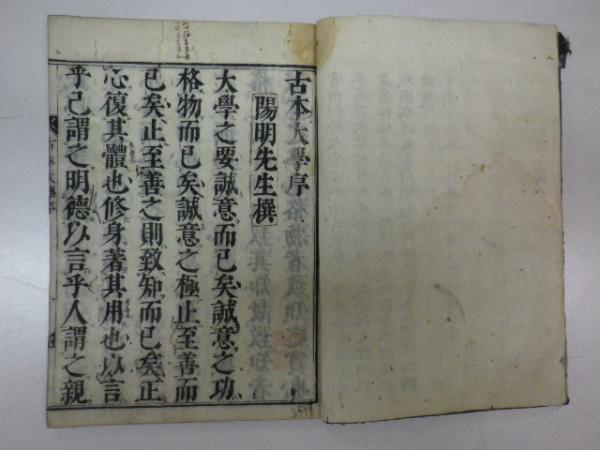 古本大學序
陽明先生撰
大學之要誠意而已矣誠意之功
格物而已矣誠意之極止至善而
已矣止至善之則致知而已矣正
心復其體也修身著其用也以言
乎己謂之明德以言乎人謂之親
古本大學序